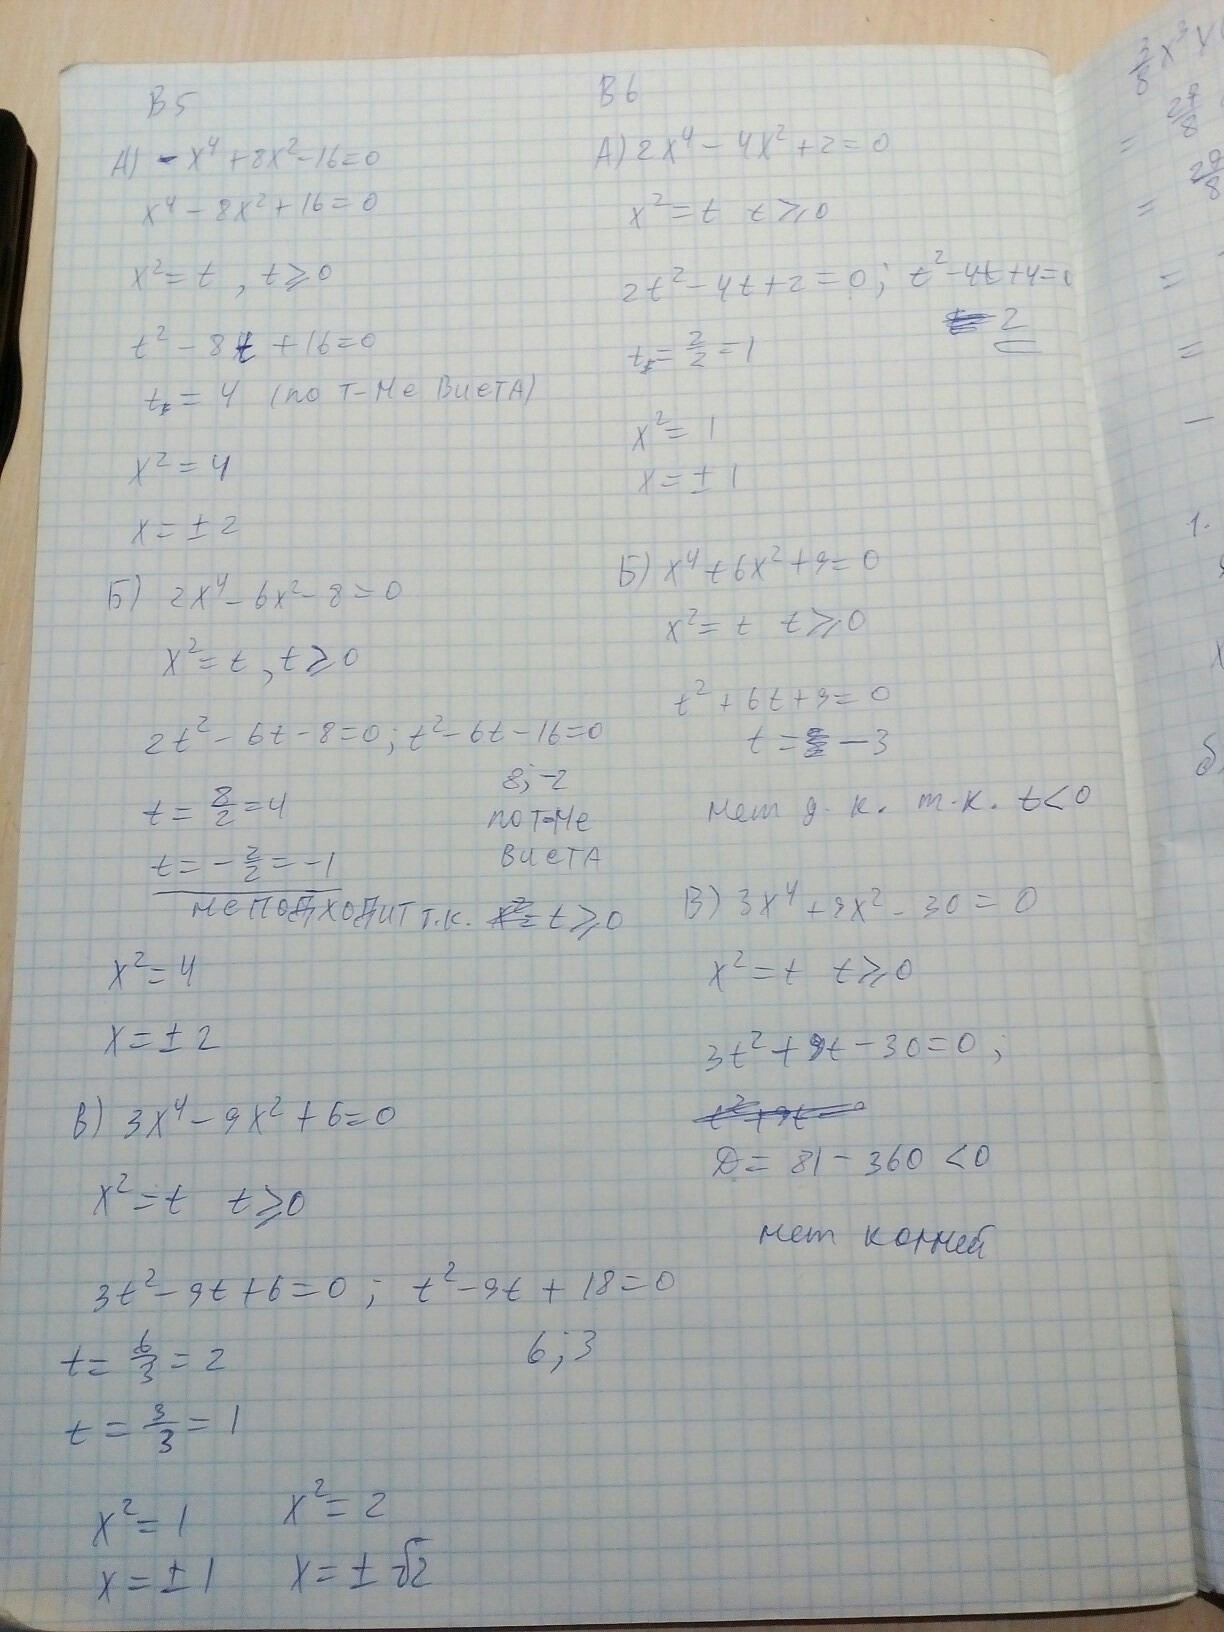 В5
А) -x⁴+8x²-16=0
x⁴-8x²+16=0
x²=t, t⩾0
t²-8t+16=0
t=4 (по т-ме Виета)
x²=4
x=±2
Б) 2x⁴-6x²-8=0
x²=t, t⩾0
2t²-6t-8=0; t²-6t-16=0
8; -2
по т-ме
Виета
t=8/2=4
t=-2/2=-1
не подходит т.к. t⩾0
x²=4
x=±2
В) 3x⁴-9x²+6=0
x²=t t⩾0
3t²-9t+6=0; t²-9t+18=0
6; 3
t=6/3=2
t=3/3=1
x²=1 x²=2
x=±1 x=±√2
В6
А) 2x⁴-4x²+2=0
x²=t t⩾0
2t²-4t+2=0; t²-4t+4=0
2
t=2/2=1
x²=1
x=±1
Б) x⁴+6x²+9=0
x²=t t⩾0
t²+6t+9=0
t=-3
нет д.к. т.к. t<0
В) 3x⁴+9x²-30=0
x²=t t⩾0
3t²+9t-30=0;
D=81-360<0
нет корней
3/8 x³
= 27/8
= 27/8
=
=
-
1.
x
б)